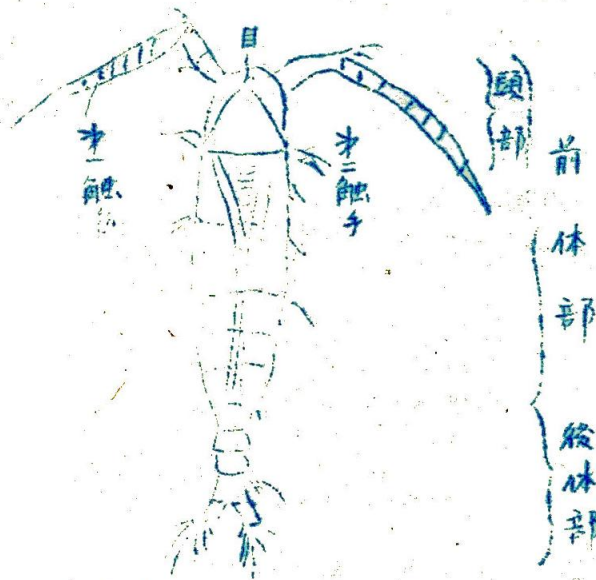 目
オ一触
オ二触手
頭部
前体部
後体部